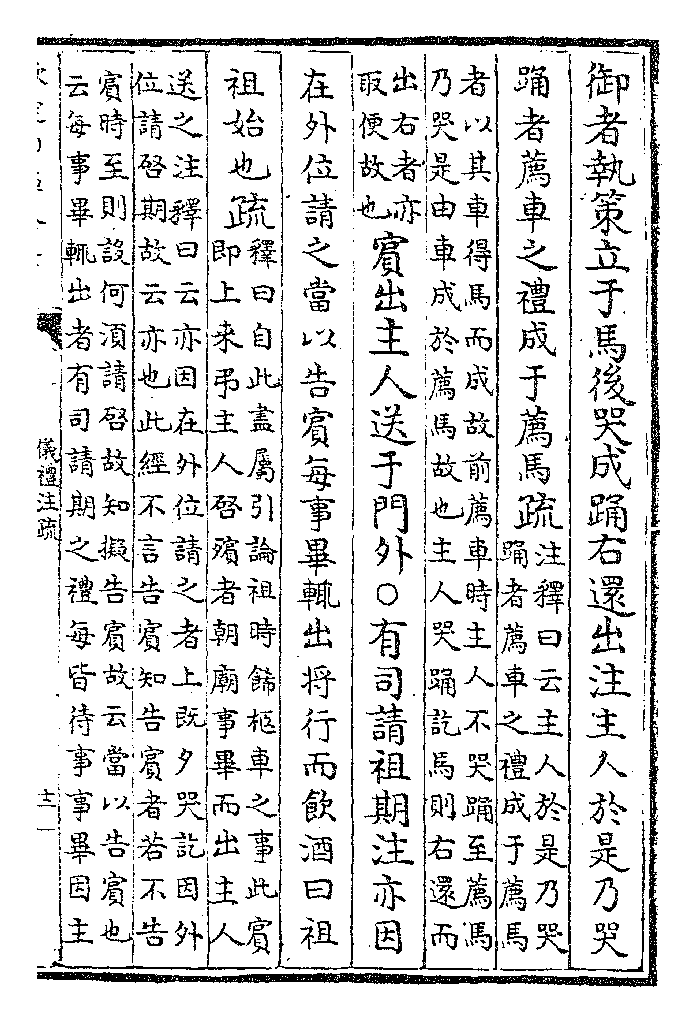 御者執策立于馬後哭成踊右還出注主人於是乃哭
踊者薦車之禮成于薦馬疏
注釋曰云主人於是乃哭
踊者薦車之禮成于薦馬
者以其車得馬而成故前薦車時主人不哭踊至薦馬
乃哭是由車成於薦馬故也主人哭踊訖馬則右還而
出右者亦
取便故也
賓出主人送于門外○有司請祖期注亦因
在外位請之當以告賓每事畢輒出將行而飲酒曰祖
祖始也疏
釋曰自此盡屬引論祖時飾柩車之事此賓
即上来弔主人啓殯者朝廟事畢而出主人
送之注釋曰云亦因在外位請之者上既夕哭訖因外
位請啓期故云亦也此經不言告賓知告賓者若不告
賓時至則設何須請啓故知擬告賓故云當以告賓也
云每事畢輒出者有司請期之禮每皆待事事畢因主
儀禮注疏